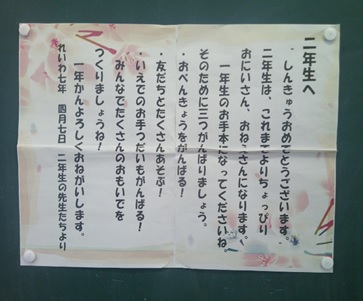 二年生へ
・しんきゅうおめでとうございます。
二年生は、これまでよりちょっぴり
おにいさん、おねえさんになります！
一年生のお手本になってくださいね。
そのために三つがんばりましょう。
・おべんきょうをがんばる！
・友だちとたくさんあそぶ！
・いえでのお手つだいもがんばる！
みんなでたくさんのおもいでを
つくりましょうね！
一年かんよろしくおねがいします。
れいわ七年　四月七日　二年生の先生たちより